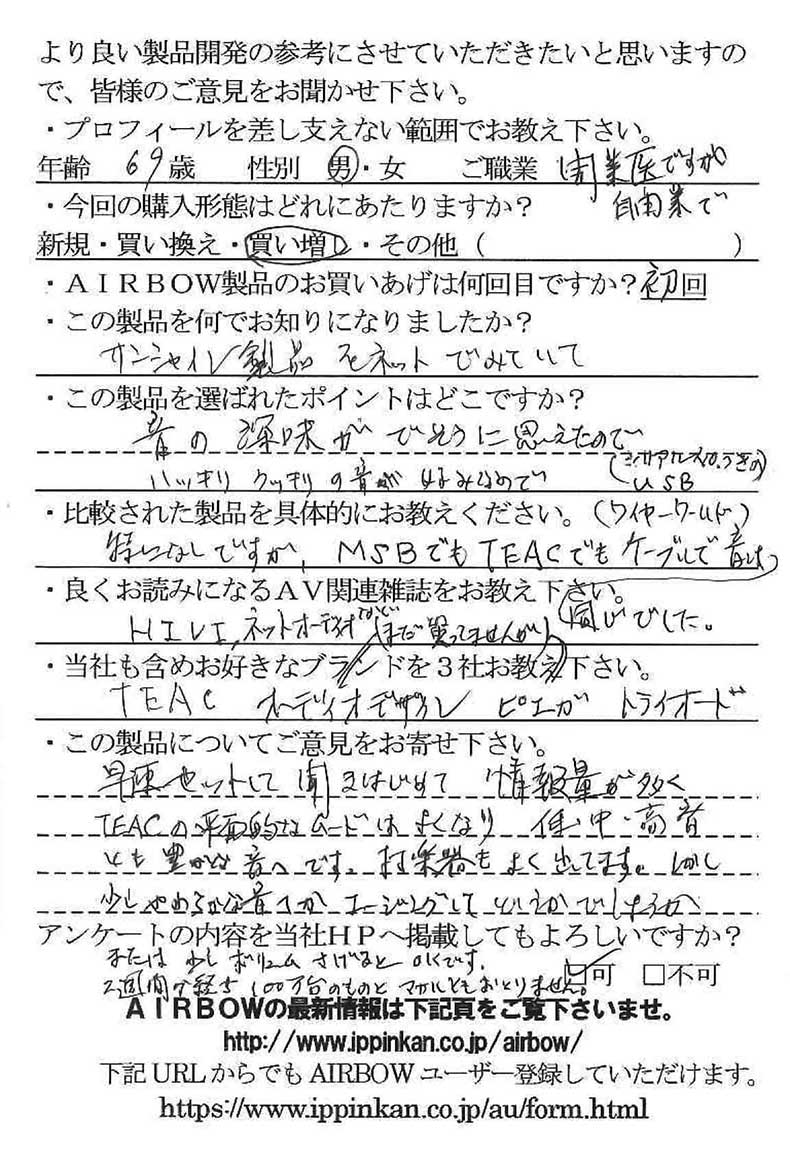 より良い製品開発の参考にさせていただきたいと思いますの
で、皆様のご意見をお聞かせ下さい。
・プロフィールを差し支えない範囲でお教え下さい。
年齢 69歳 性別 男・女 ご職業 開業医ですが
自由業で
・今回の購入形態はどれにあたりますか?
新規・買い換え・買い増し・その他( )
・AIRBOW製品のお買いあげは何回目ですか?初回
・この製品を何でお知りになりましたか?
サンシャイン製品をネットでみていて
・この製品を選ばれたポイントはどこですか?
音の深味がでそうに思えたので
ハッキリクッキリの音が好みなので
USB
・比較された製品を具体的にお教えください。(ワイヤーワールド)
特になしですが、MSBでもTEACでもケーブルで音は
・良くお読みになるAV関連雑誌をお教え下さい。
同じでした。
HIVI、ネットオーディオなど(まだ買ってませんが)
・当社も含めお好きなブランドを3社お教え下さい。
TEAC オーディオデザイン ピエガ トライオード
・この製品についてご意見をお寄せ下さい。
早速セットして聞きはじめて 情報量が多く
TEACの平面的なムードはよくなり 低・中・高音
とも豊かな音へです。打楽器もよく出てます。しかし
少しやわらかな音 エージングして
アンケートの内容を当社HPへ掲載してもよろしいですか?
または少しボリュームさげるとOKです。
☑可 □不可
2週間が経ち100万台のものと おとりません。
AIRBOWの最新情報は下記頁をご覧下さいませ。
http://www.ippinkan.co.jp/airbow/
下記URLからでもAIRBOWユーザー登録していただけます。
https://www.ippinkan.co.jp/au/form.html